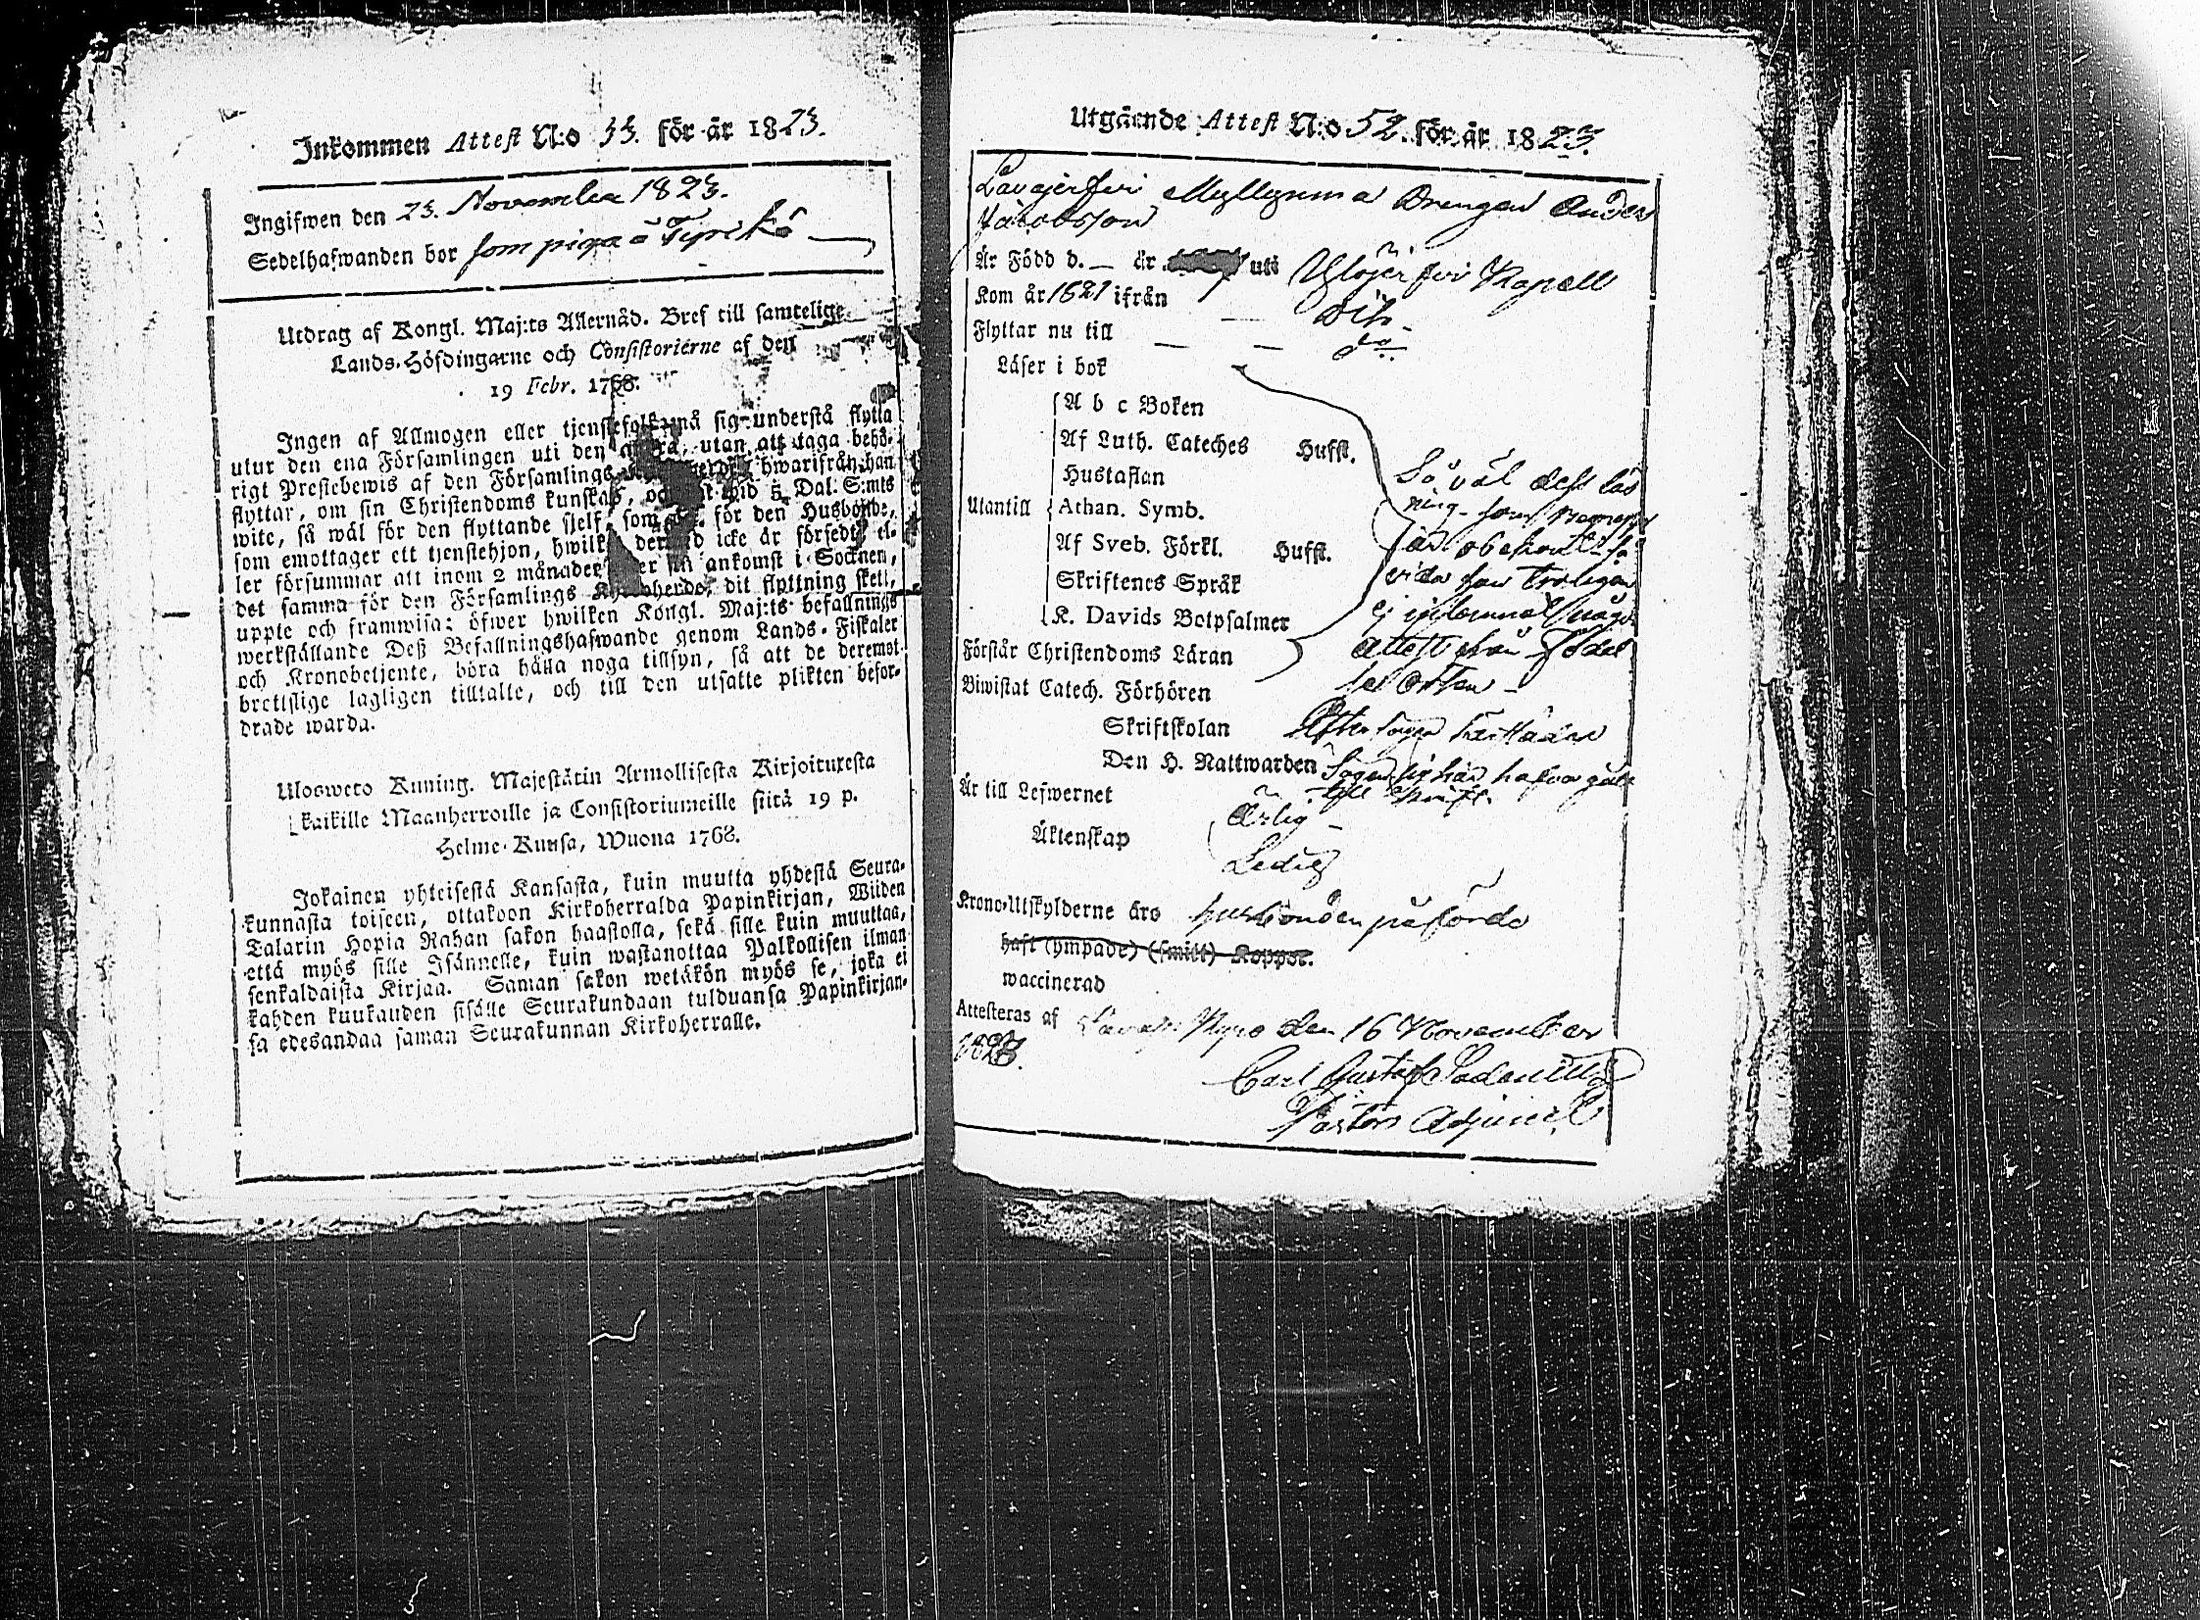 Inkommen Attest N:o 33. för år 1823.
Ingifwen den 23. November 1823.
Sedelhafwanden bor som piga å Tyrikö
Utdrag af Kongl. Maj:ts Allernåd. Bref till samtelige
Lands-Höfdingarne och Consistorierne af den
19 Febr. 1768.
Ingen af Allmogen eller tjenstefolk må sig understå flytta
utur den ena Församlingen uti den andra, utan att taga behö-
rigt Prestebewis af den Församlings hwarifrån han
flyttar, om sin Christendoms kunskap, och wid 5 Dal. S:mts
wite, så wäl för den flyttande sjelf, som för den Husbonde,
som emottager ett tjenstehjon, hwilken icke är försedt, el-
ler försummar att inom 2 månader efter sin ankomst i Socknen,
det samma för den Församlings Kyrkoherde, dit flyttning skett,
uppte och framwisa: öfwer hwilken Kongl. Maj:ts befallnings
werkställande Deß Befallningshafwande genom Lands-Fiskaler
och Kronobetjente, böra hålla noga tillsyn, så att de deremot
brottslige lagligen tilltalte, och till den utsatte plikten befor-
drade warda.
Ulosweto Kuning. Majestätin Armollisesta Kirjoituxesta
kaikille Maanherroille ja Consistoriumeille siitä 19 p.
Helme-Kuusa, Wuona 1768.
Jokainen yhteisestä Kansasta, kuin muutta yhdestä Seura-
kunnasta toiseen, ottakoon Kirkoherralda Papinkirjan, Wiiden
Talarin Hopia Rahan sakon haastolla, sekä sille kuin muuttaa,
että myös sille Isännelle, kuin wastanottaa Palkollisen ilman
senkaldaista Kirjaa. Saman sakon wetäkön myös se, joka ei
kahden kuukauden sisälle Seurakundaan tulduansa Papinkirjan-
sa edesandaa saman Seurakunnan Kirkoherralle.
Utgående Attest N:o 52. för år 1823.
Myllynma Drengen Anders
Jacobsson
Är Född d. — år uti Ylöjerfvi Kapell
Kom år 1821 ifrån — Dito
Flyttar nu till — — do.
Läser i bok
A b c Boken
Af Luth. Cateches Hufst.
Hustaflan
Utantill Athan. Symb.
Af Sveb. Förkl. Hufst.
Skriftenes Språk
K. Davids Botpsalmer
Så väl dess läs
ning som
är obekant så
vida han troligen
ej inlemnat någon
attest från Födel
se Orten —
Förstår Christendoms Läran
Biwistat Catech. Förhören
Skriftskolan
Den H. Nattwarden Säger sig här hafva gått
till Skrift.
Är till Lefwernet Ärlig —
Äktenskap Ledig
Krono-Utskylderne äro husbonden påförde
haft (ympade) (smitt) Koppor.
waccinerad
Attesteras af Kyro den 16 November
1823.
Carl Gustaf
Pastors Adjunct